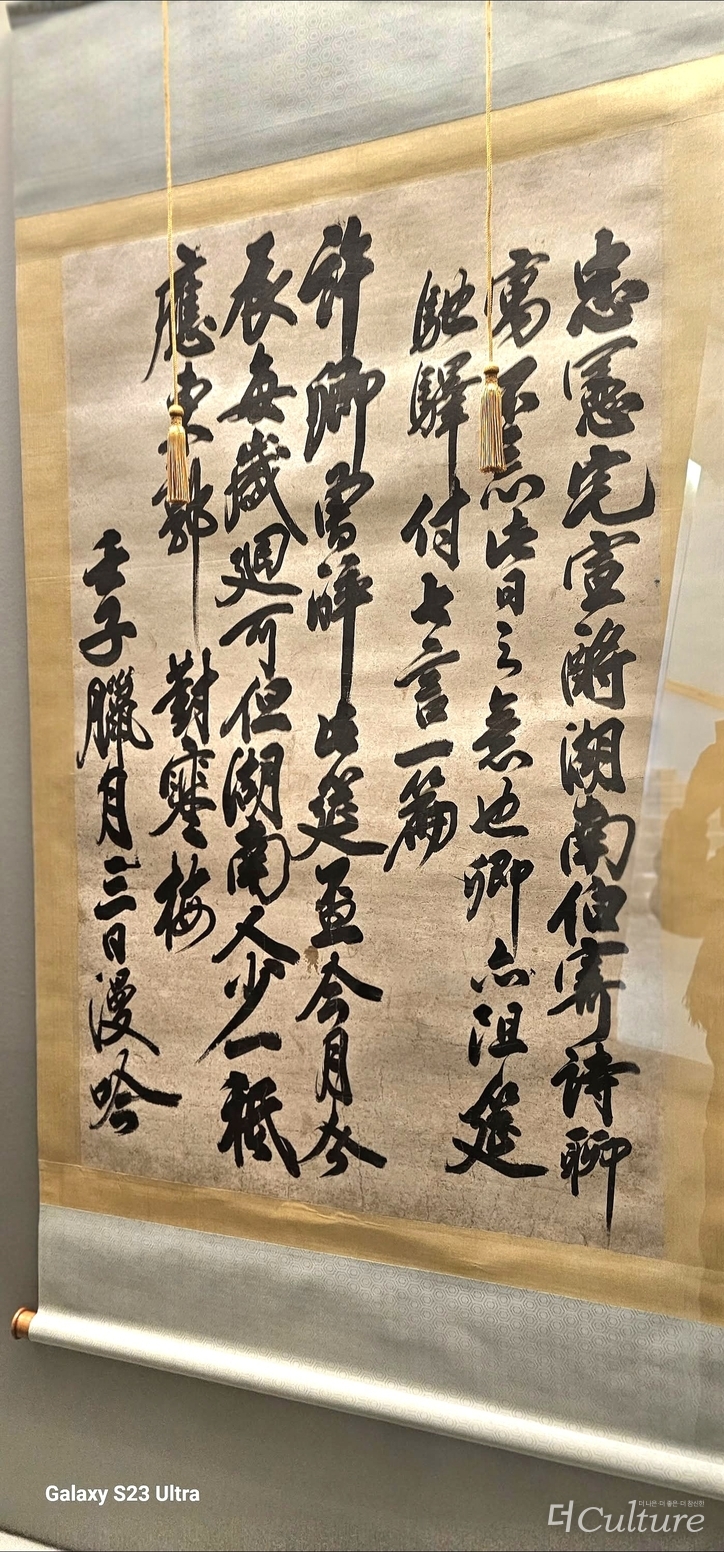 忠憲宅宣醉湖南伯寄詩聊
寓不忘此日之意也卿亦阻筵
馳驛付七言一篇
許卿曾醉此筵盃今月今
辰每歲廻可但湖南人少一秪
應東郭對寒梅
壬子臘月三日漫吟
Galaxy S23 Ultra
더나은·더좋은·더참신한
더Culture